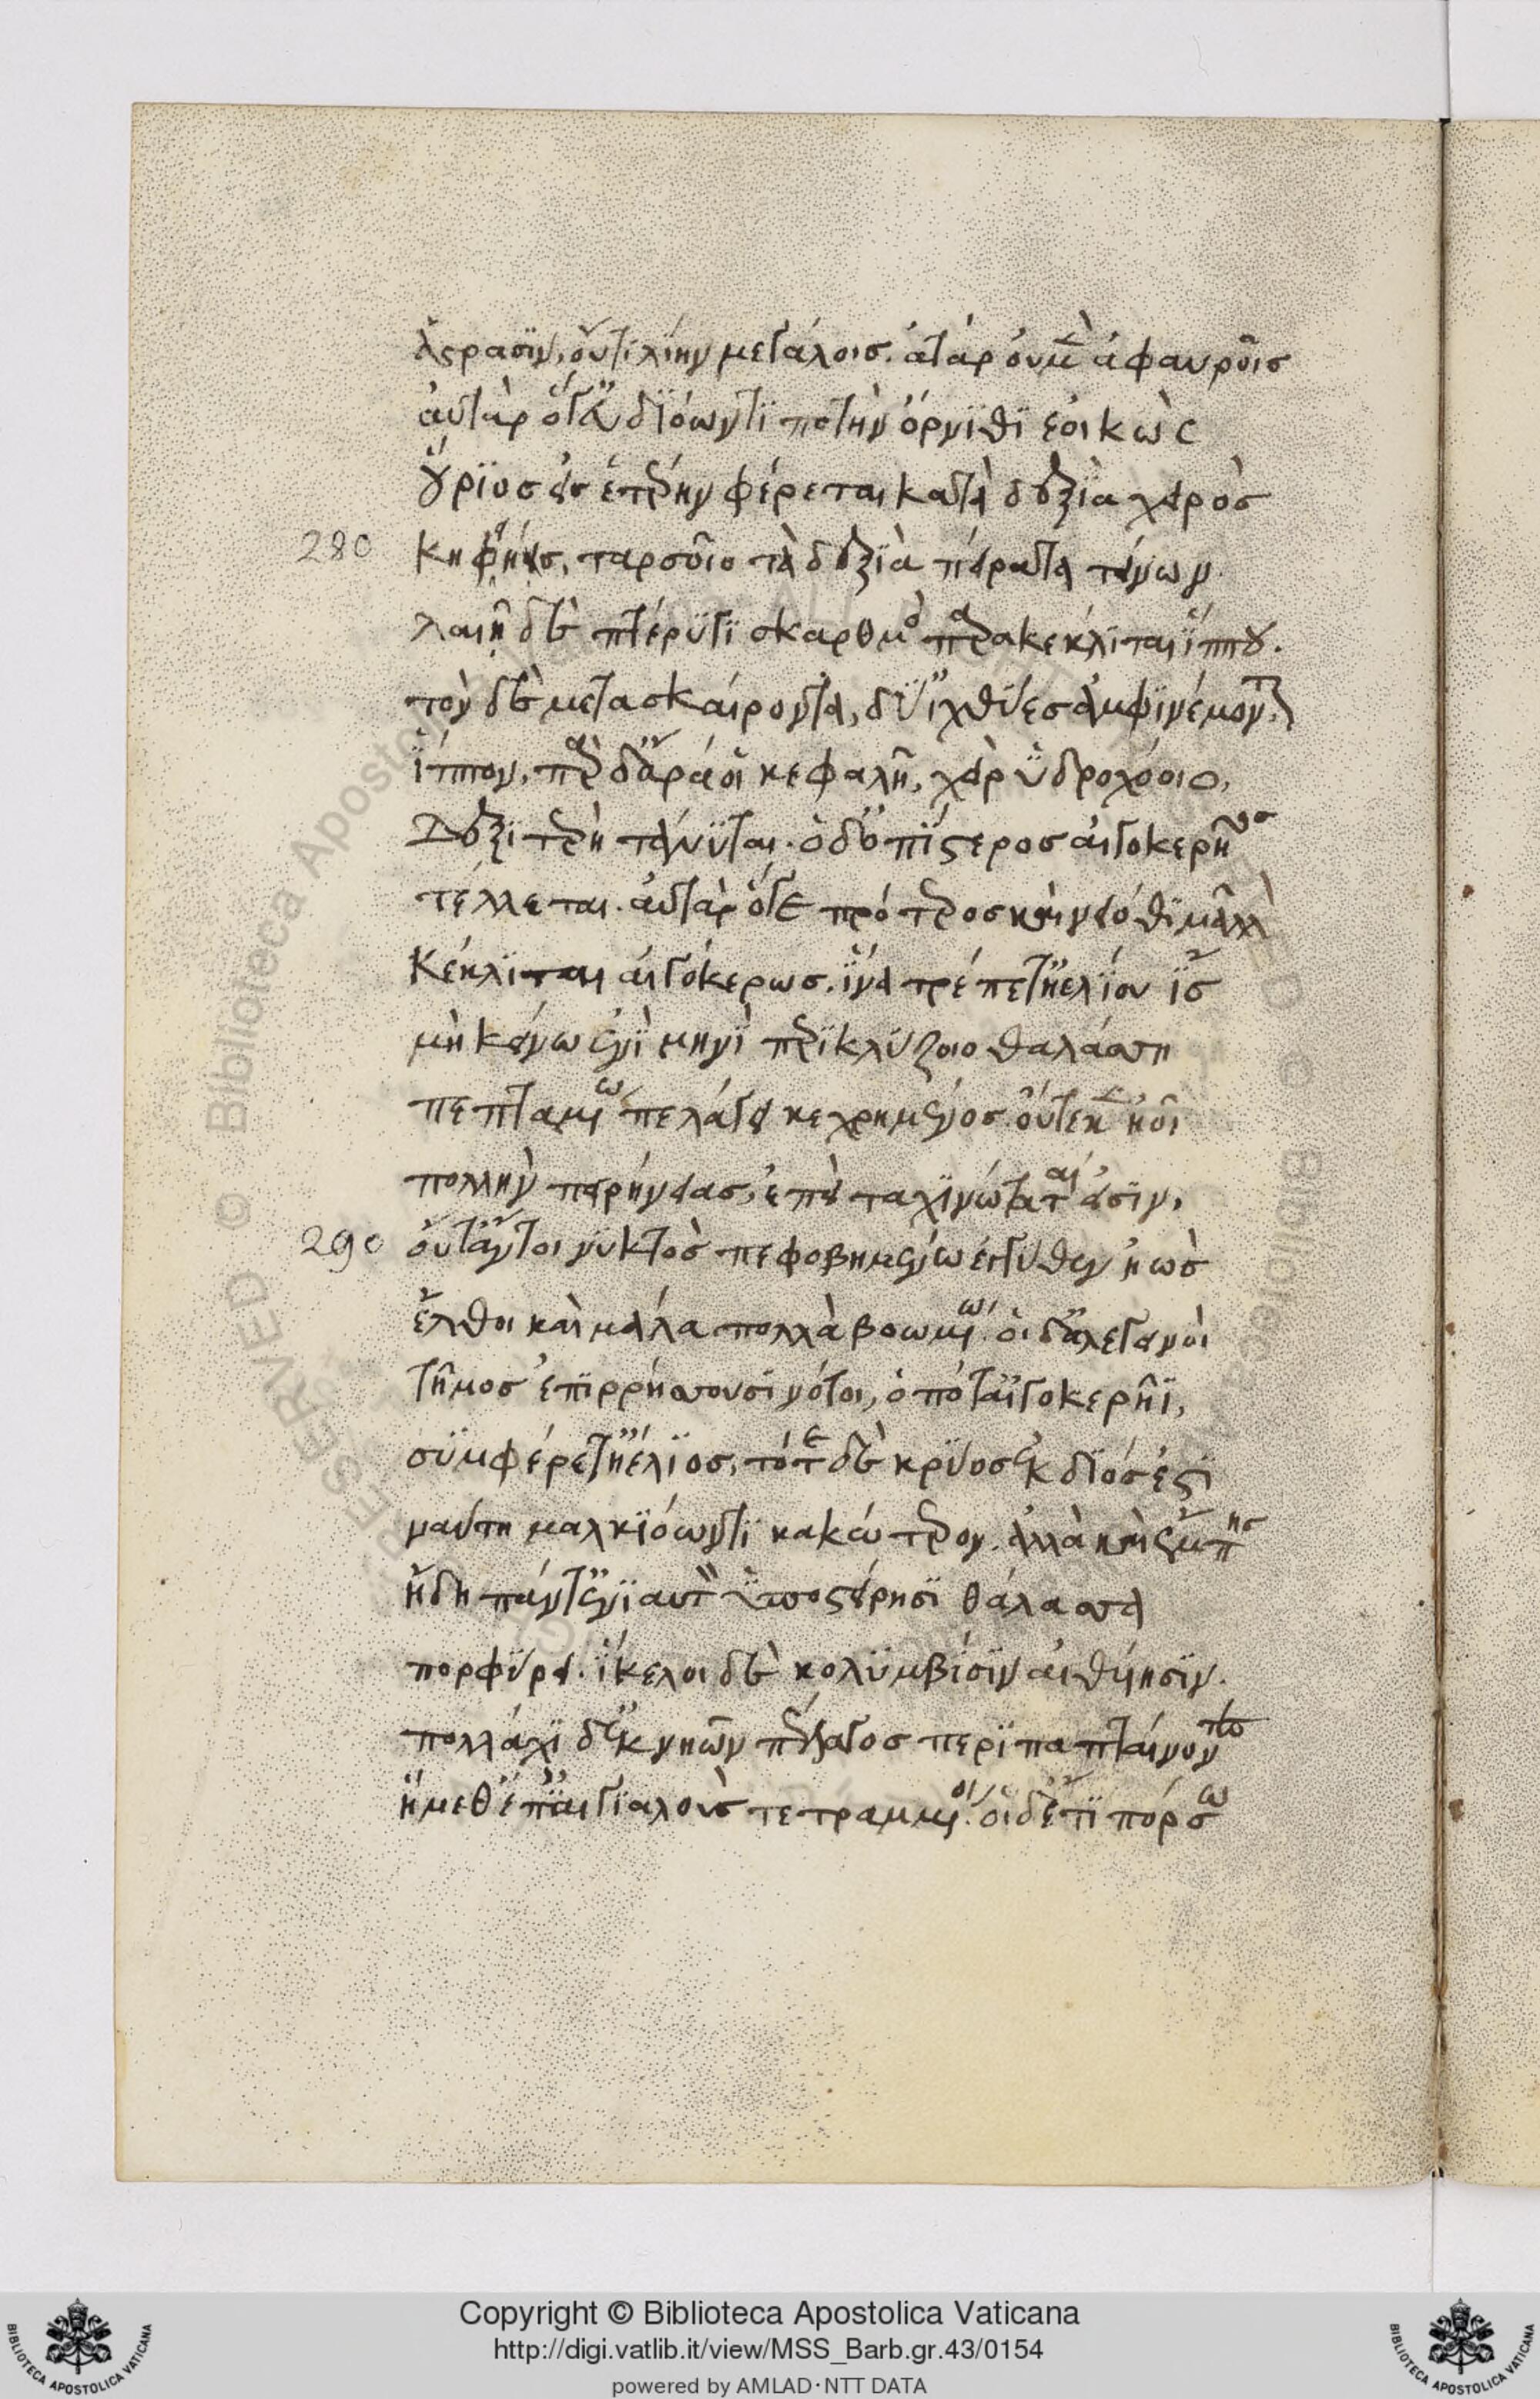 ἀστράσϊν, οὔτι λίην μεγάλοισ. ἀτὰρ οὐ μὲν ἀφαυροῖσ
ἀυτὰρ ὅγ᾽ ἐυδϊόωντϊ ποτὴν ὄρνϊθϊ ἐοικὼς
οὔρϊοσ εἰσ ἑτέρην φέρεται κατὰ δεξϊὰ χειρὸσ
280 κηφῆοσ, ταρσοῖο τὰ δεξϊὰ πείρατα τείνων.
λαιῆ δὲ πτέρϋγϊ σκαρθμὸσ παρακέκλϊται ἵππου.
τὸν δὲ μετασκαίροντα, δύ᾽ ἰχθύεσ ἀμφϊνέμονται
ἵππον. παρ δ᾽ ἄρα οἱ κεφαλῆ, χεὶρ ὑδροχόοιο,
δεξϊτερὴ τανύϋται. ὁ δ᾽ ὀπίστεροσ αἰγοκερῆοσ
τέλλεται. ἀυτὰρ ὅγε πρότεροσ καὶ νειόθϊ μᾶλλον
κέκλϊται αἰγόκερωσ. ἵνα τρέπετ᾽ ἠελίου ἲσ
μὴ κείνω ἐνὶ μηνὶ περϊκλύζοιο θαλάσση
πεπταμένω πελάγει κεχρημένοσ. οὔτε κεν ἠοῖ
πολλὴν πειρήνειασ, ἐπεὶ ταχϊνώταταί εἰσϊν,
290 οὔτ᾽ ἄν τοι νυκτὸσ πεφοβημένω ἐγγύθεν ἠὼσ
ἔλθοι καὶ μάλα πολλὰ βοωμένω. οἱ δ᾽ ἀλεγεινοὶ
τῆμοσ ἐπϊρρήσσουσϊ νότοι, ὁπότ᾽ αἰγοκερῆϊ,
συμφέρετ᾽ ἠέλϊοσ, τότε δὲ κρύοσ ἐκ δϊόσ ἐστϊ
ναύτη μαλκϊόωντϊ κακώτερον. ἀλλὰ καὶ ἔμπησ
ἤδη πάντ᾽ ἐνϊαυτὸν ὑπὸ στείρησϊ θάλασσα
πορφύρει. ἴκελοι δὲ κολυμβίσϊν αἰθυίησϊν.
πολλάκϊ δ᾽ ἐκ νηῶν πέλαγοσ περϊπαπταίνοντεσ
ἥμεθ᾽ ἐπ᾽ αἰγϊαλοὺσ τετραμμένοι. οἱ δ᾽ ἔτϊ πόρσω
Copyright © Biblioteca Apostolica Vaticana
http://digi.vatlib.it/view/MSS_Barb.gr.43/0154
powered by AMLAD·NTT DATA